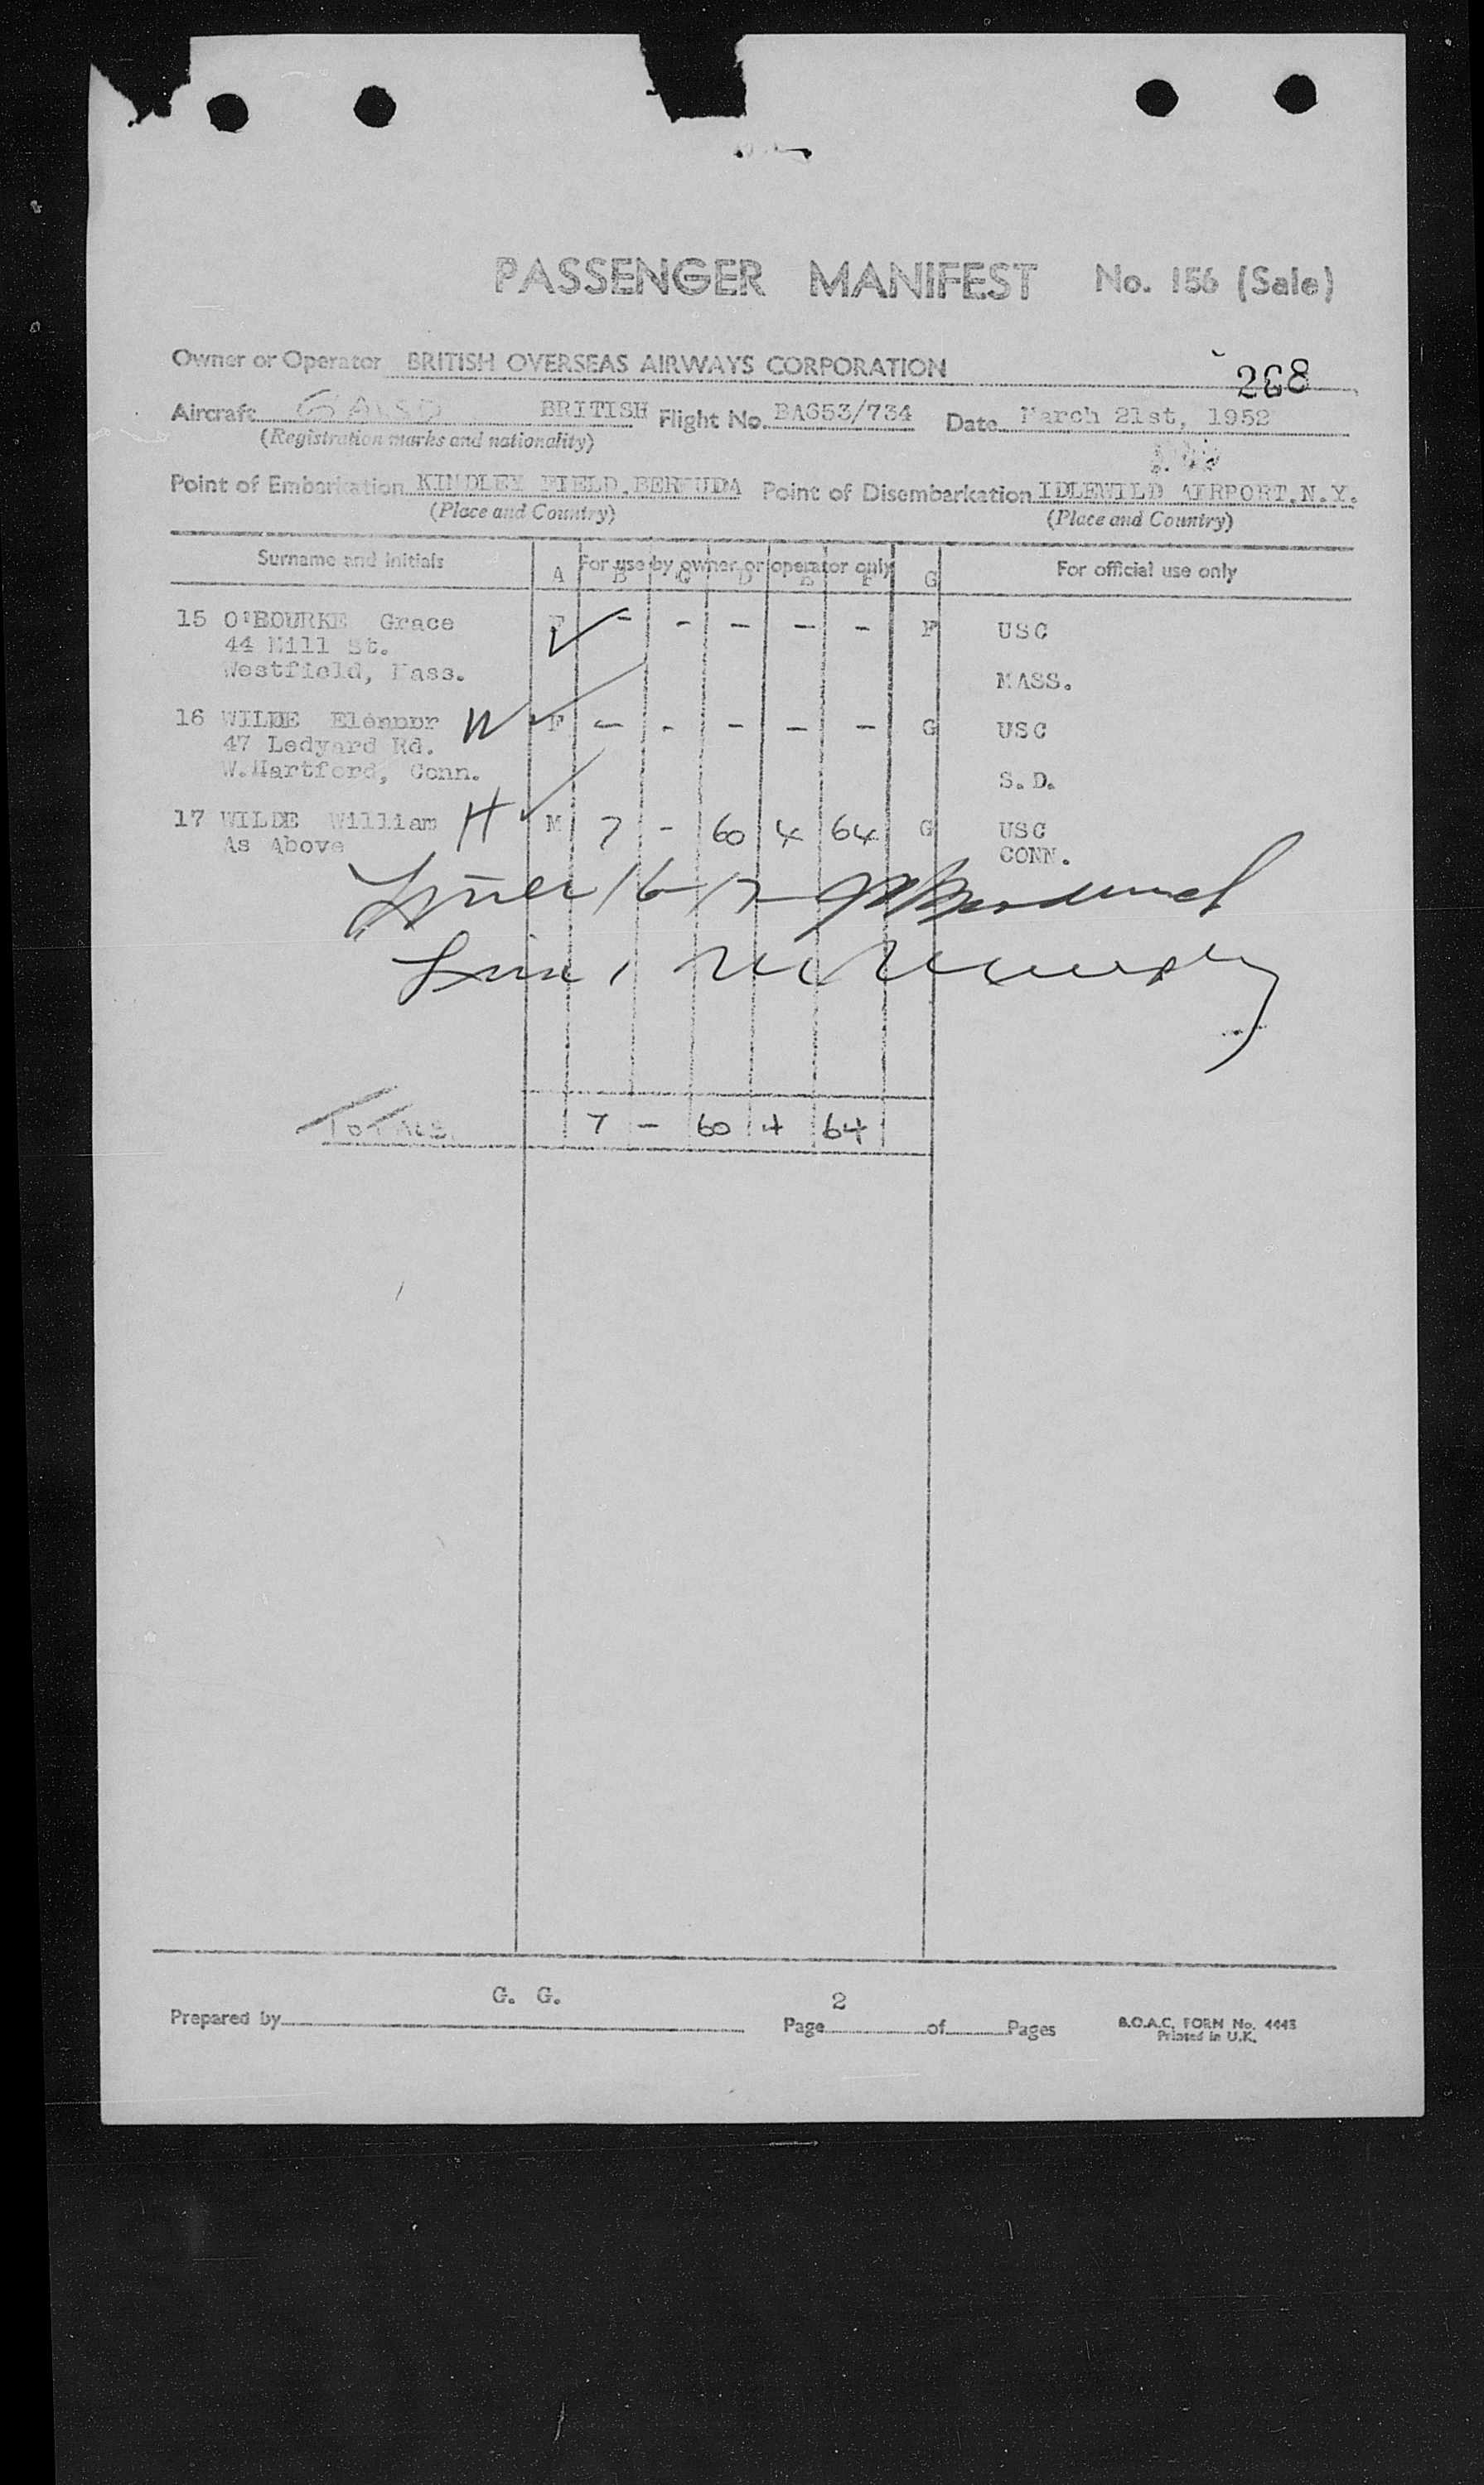 PASSENGER MANIFEST No. 156 (Sale)
Owner or Operator BRITISH OVERSEAS AIRWAYS CORPORATION
268
Aircraft BRITISH Flight No. BA653/734 Date March 21st, 1952
(Registration marks and nationality)
Point of Embarkation KINDLEY FIELD, BERMUDA Point of Disembarkation IDLEWILD AIRPORT, N.Y.
(Place and Country) (Place and Country)
Surname and initials For use by owner or operator only For official use only
A B C D E F G
15 O'BOURKE Grace F - - - - - F USC
44 Mill St.
Westfield, Mass. MASS.
16 WILDE Elenour W F - - - - - G USC
47 Ledyard Rd.
W.Hartford, Conn. S.D.
17 WILDE William H M 7 - 60 4 64 G USC
As Above CONN.
16-17
TOTALS 7 - 60 4 64
G. G. 2
Prepared by Page of Pages B.O.A.C. FORM No. 4445
Printed in U.K.